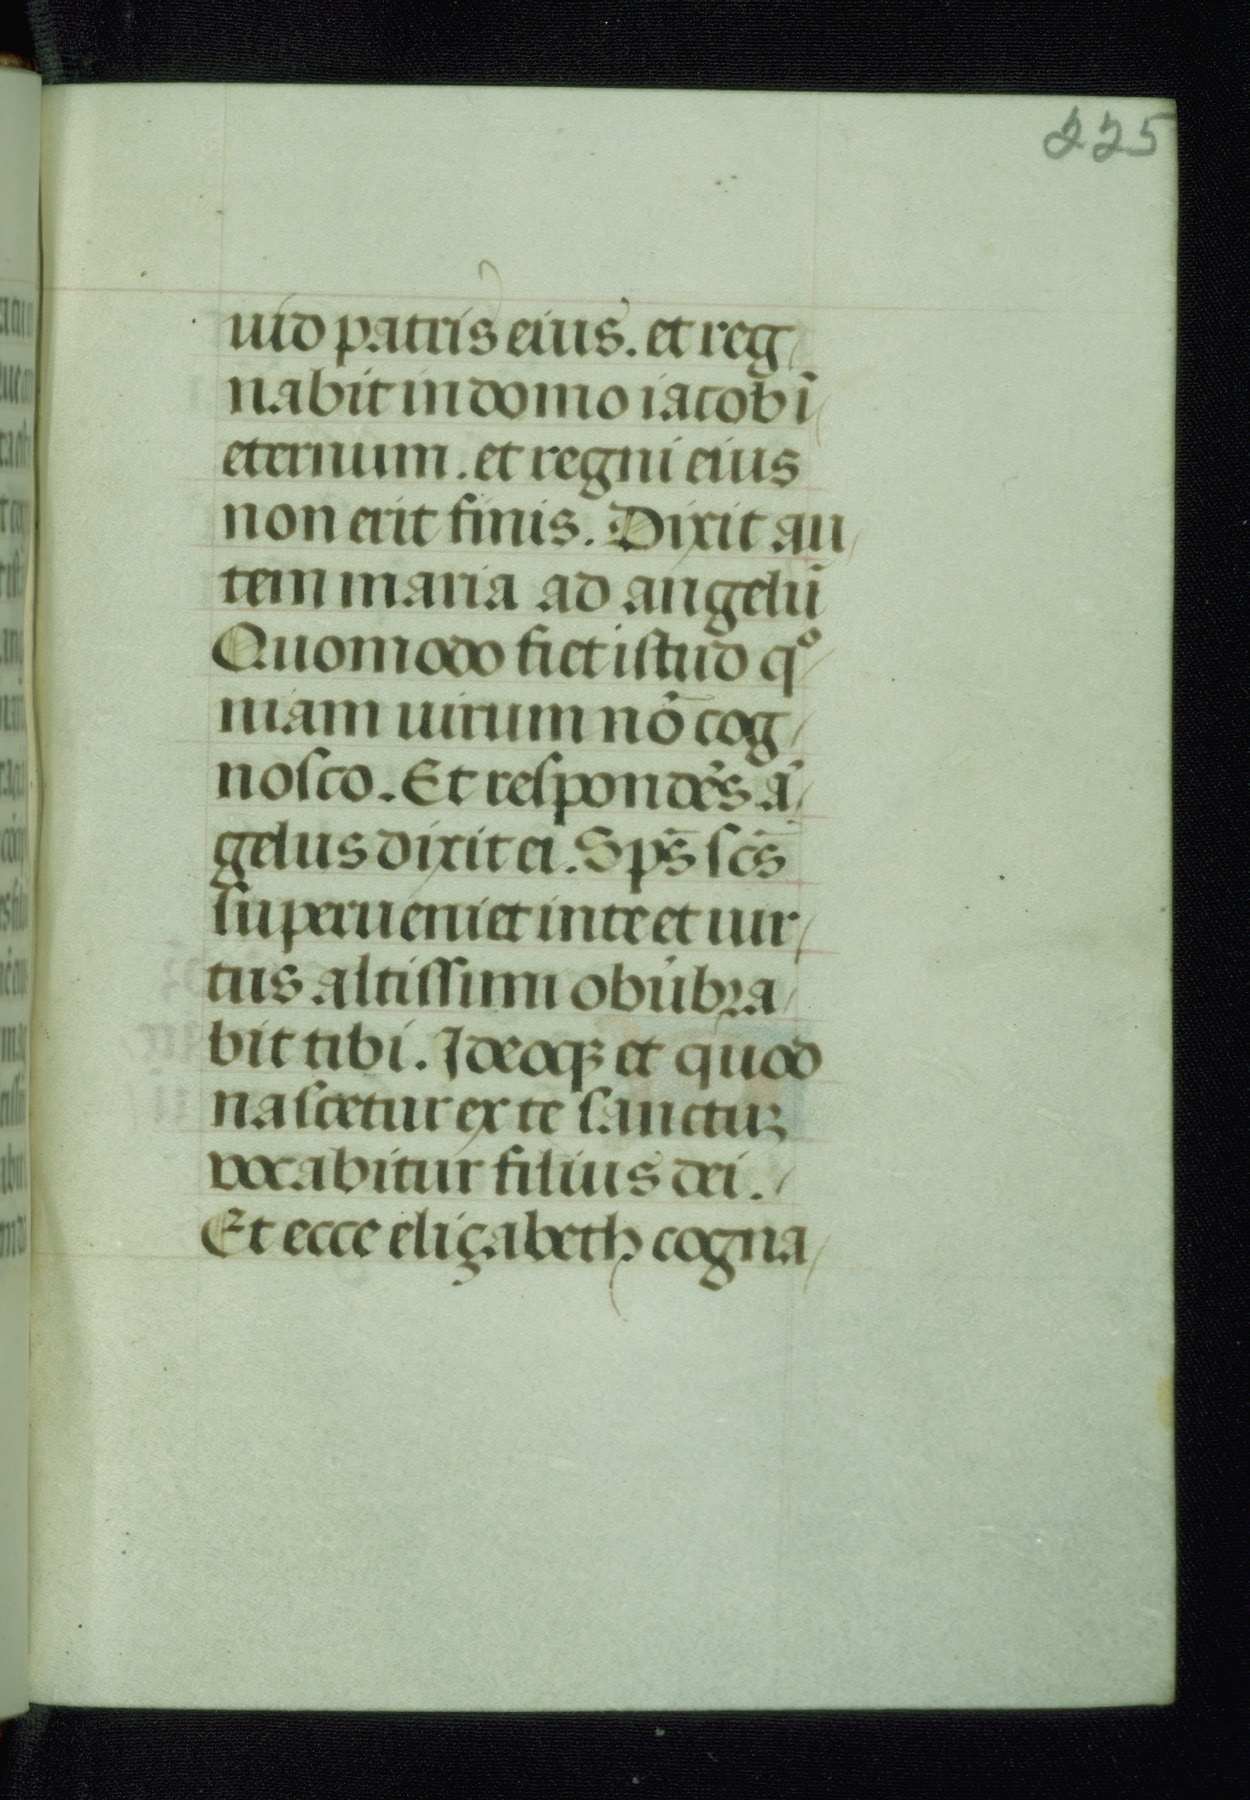 225
uid patris eius. et reg
nabit in domo iacob ī
eternum. et regni eius
non erit finis. Dixit au
tem maria ad angelū
Quomodo fiet iſtud qͦ
niam uirum nō cog
noſco. Et reſpondēs ā
gelus dixit ei. Sp̄s ſc̄s
ſuperueniet in te et uir
tus altiſſimi obūbra
bit tibi. Ideoqꝫ et quod
naſcetur ex te ſanctuꝫ
vocabitur filius dei.
Et ecce eliçabeth cogna